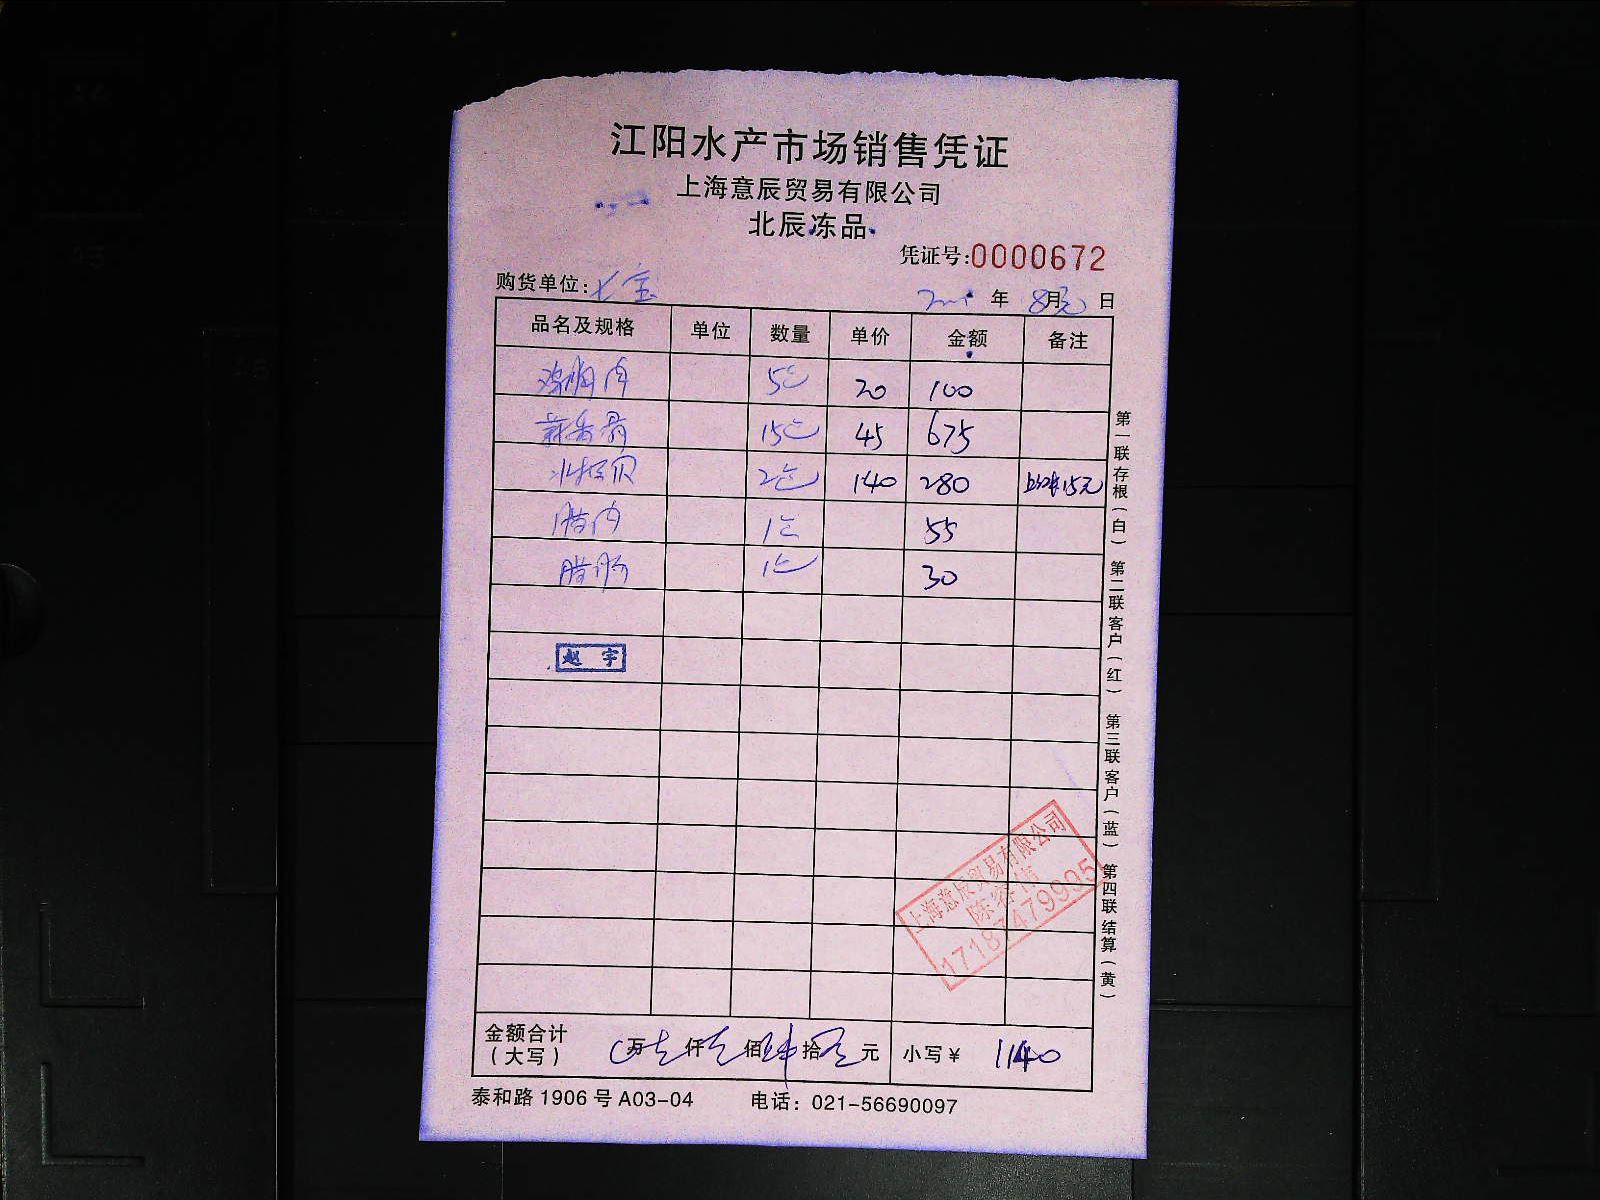 江阳水产市场销售凭证
上海意辰贸易有限公司
北辰冻品
凭证号:0000672
购货单位:七宝 年 8月 日
品名及规格 单位 数量 单价 金额 备注
鸡胸肉 5 20 100
15 45 675
贝 2 140 280 15元
腊肉 1 55
腊肠 1 30
赵宇
上海意辰贸易有限公司
金额合计(大写) 万 仟 佰 拾 元 小写¥ 1140
泰和路1906号A03-04 电话:021-56690097
第一联存根(白) 第二联客户(红) 第三联客户(蓝) 第四联结算(黄)